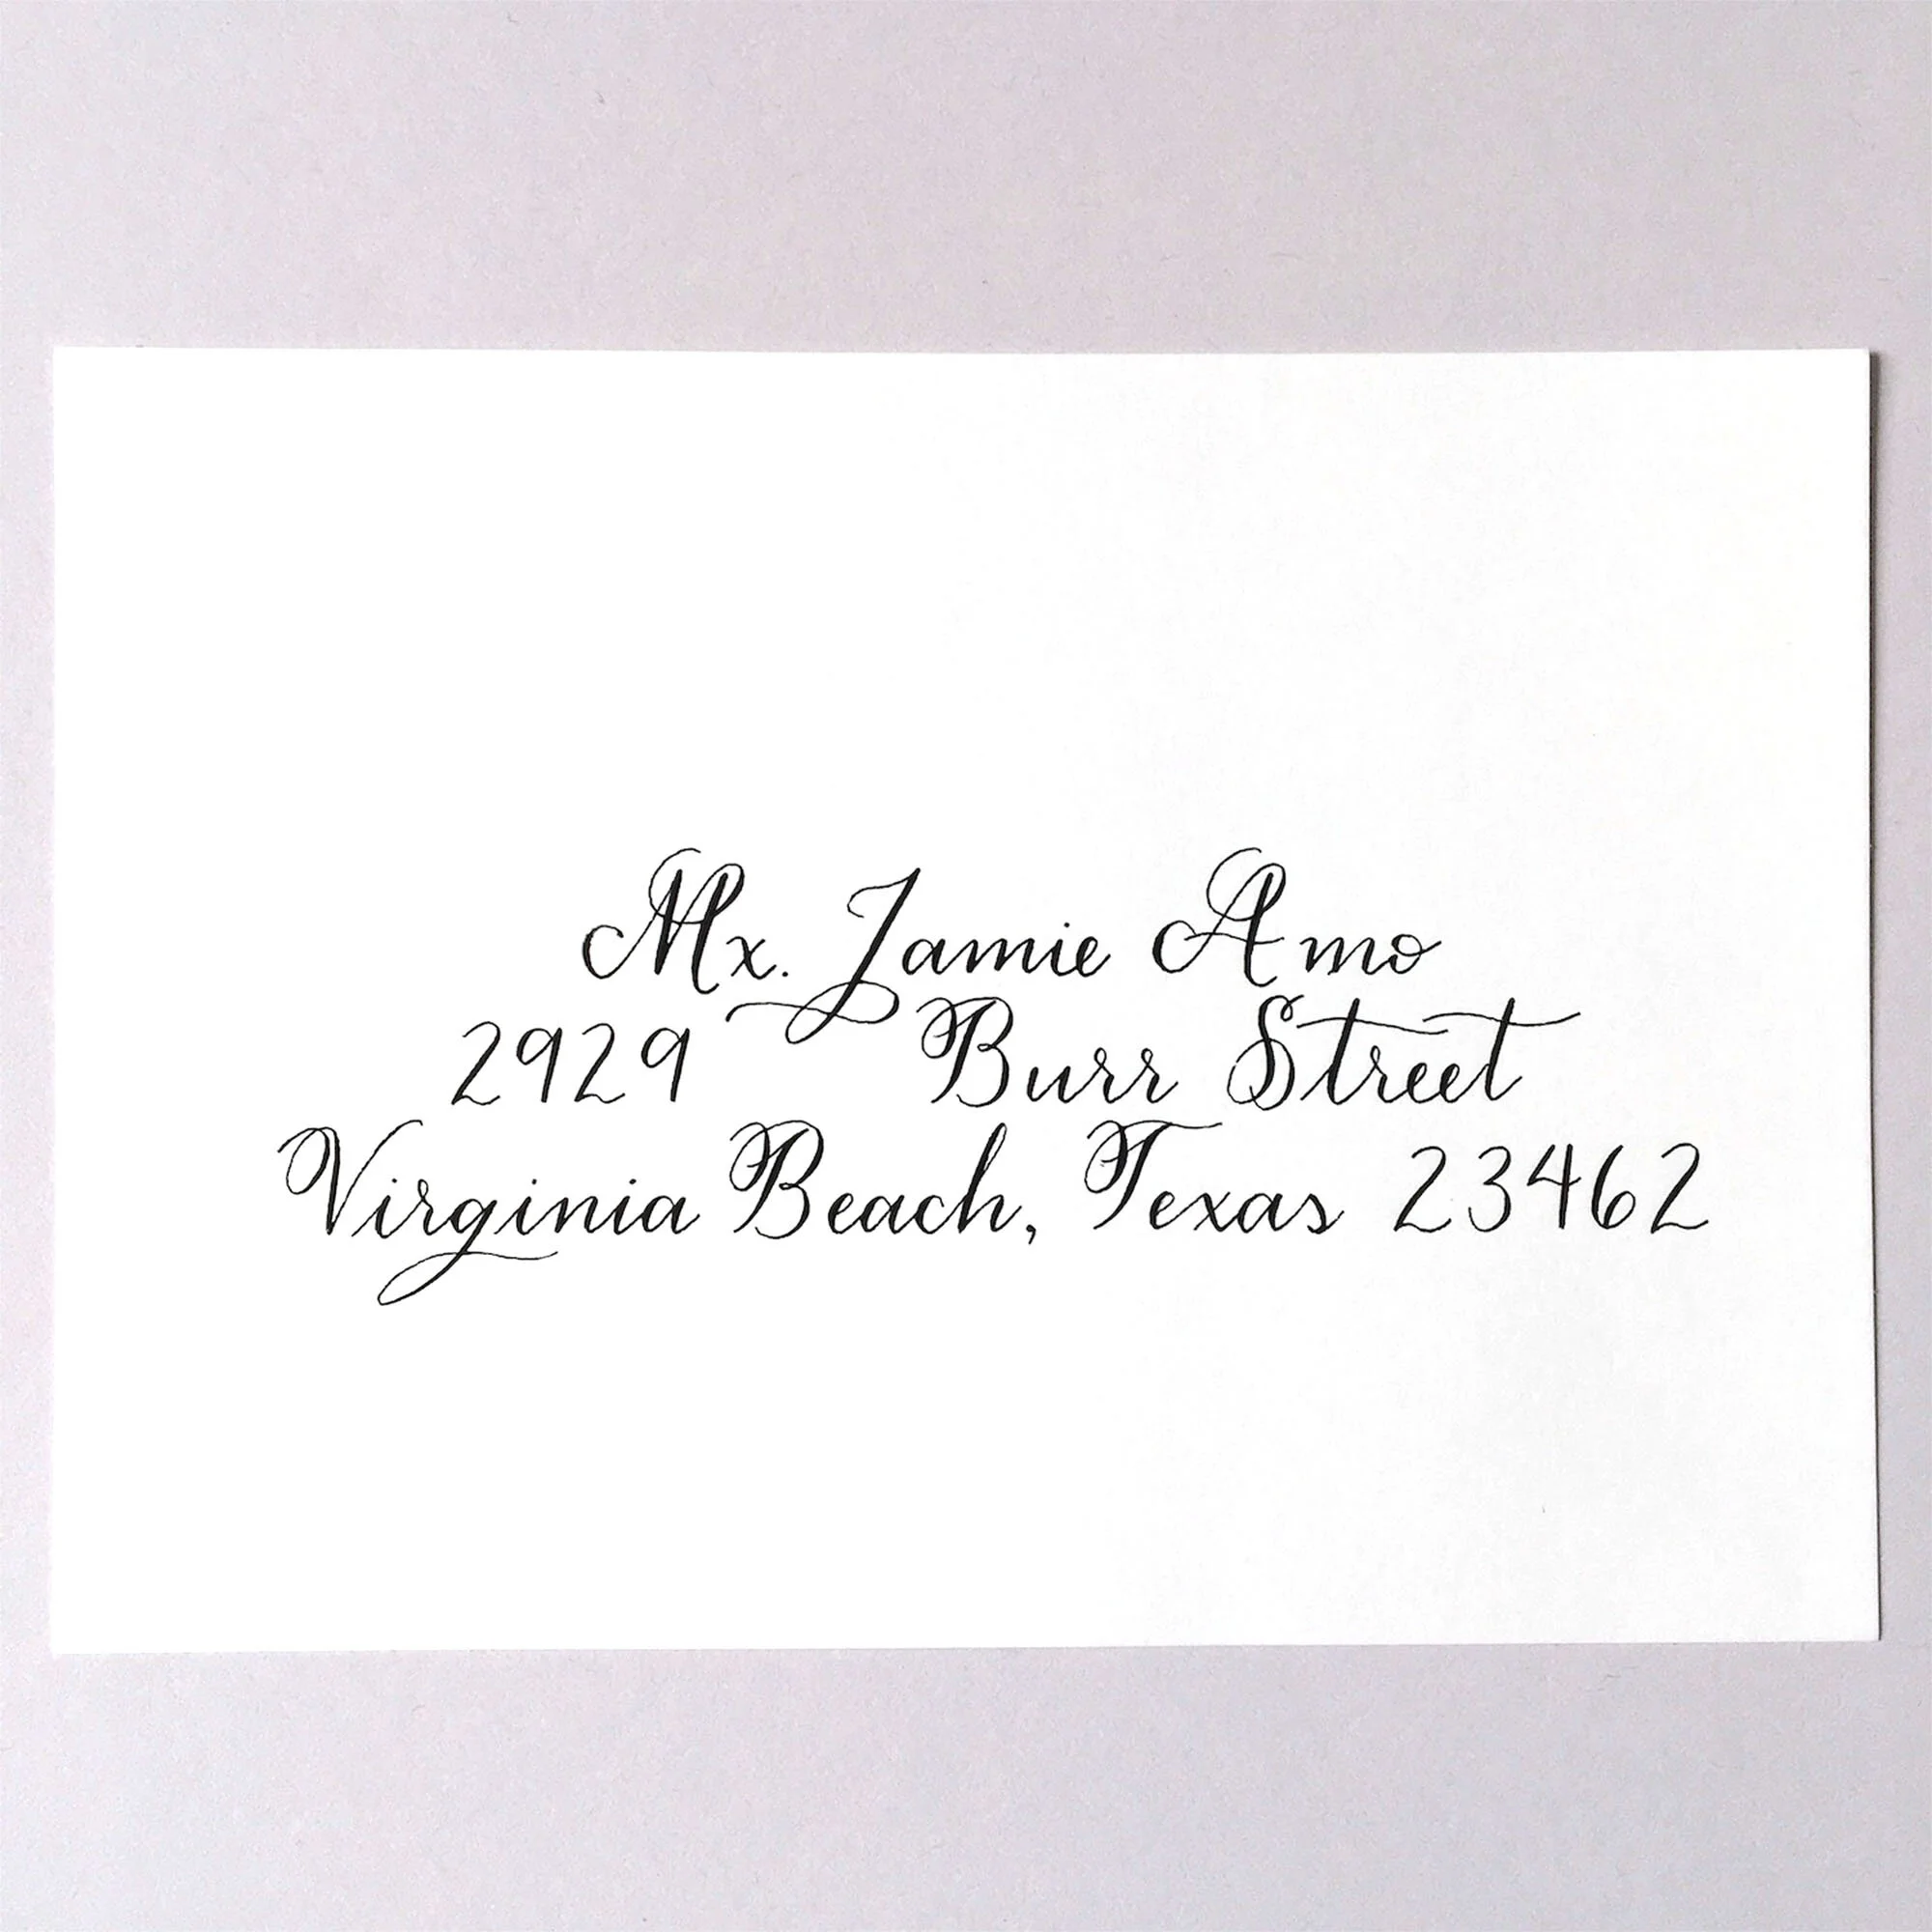 Mx. Jamie Amo
2929 Burr Street
Virginia Beach, Texas 23462